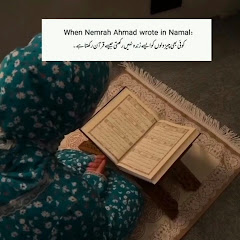 When Nemrah Ahmad wrote in Namal:
کوئی بھی چیز دلوں کو ایسے زندہ نہیں رکھتی جیسے قرآن رکھتا ہے۔